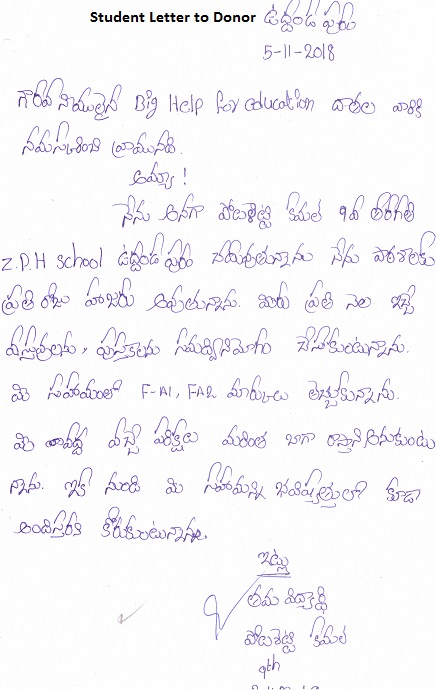 Student Letter to Donor
ఉద్దండ పురం
5-11-2018
గౌరవ నీయులైన Big Help for education దాతల వారికి
నమస్కరించి వ్రాయునది.
అయ్యా !
నేను అనగా పోలుశెట్టి కమల 9వ తరగతి
Z.P.H school ఉద్దండ పురం చదువుతున్నాను నేను పాఠశాలకు
ప్రతి రోజు హాజరు అవుతున్నాను. మీరు ప్రతి నెల ఇచ్చే
వస్తువులను, పుస్తకాలను సద్వినియోగం చేసుకుంటున్నాను.
మీ సహాయంతో F-A1, FA2 మార్కులు తెచ్చుకున్నాను.
మీ వచ్చే పరీక్షలు మరింత బాగా రాస్తాని అనుకుంటు
న్నాను. ఇక నుండి మీ సహాయాన్ని భవిష్యత్తులో కూడా
అందిస్తారని కోరుకుంటున్నాను.
ఇట్లు
తమ విద్యార్థి
పోలుశెట్టి కమల
9th